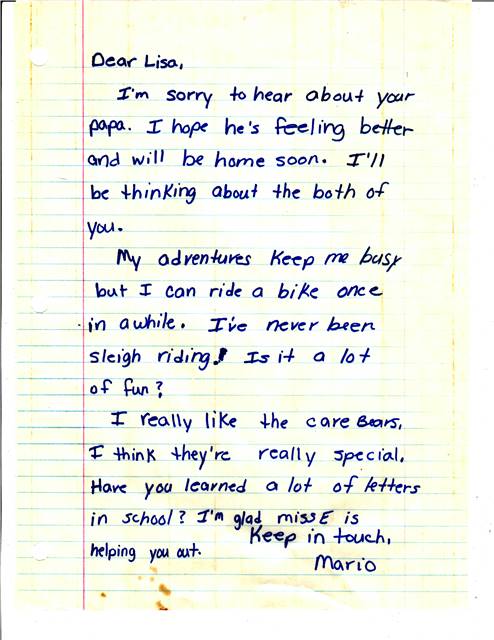 Dear Lisa,
I'm sorry to hear about your
papa. I hope he's feeling better
and will be home soon. I'll
be thinking about the both of
you.
My adventures keep me busy
but I can ride a bike once
in awhile. I've never been
sleigh riding! Is it a lot
of fun?
I really like the care Bears,
I think they're really special.
Have you learned a lot of letters
in school? I'm glad miss E is
helping you out.
Keep in touch,
Mario